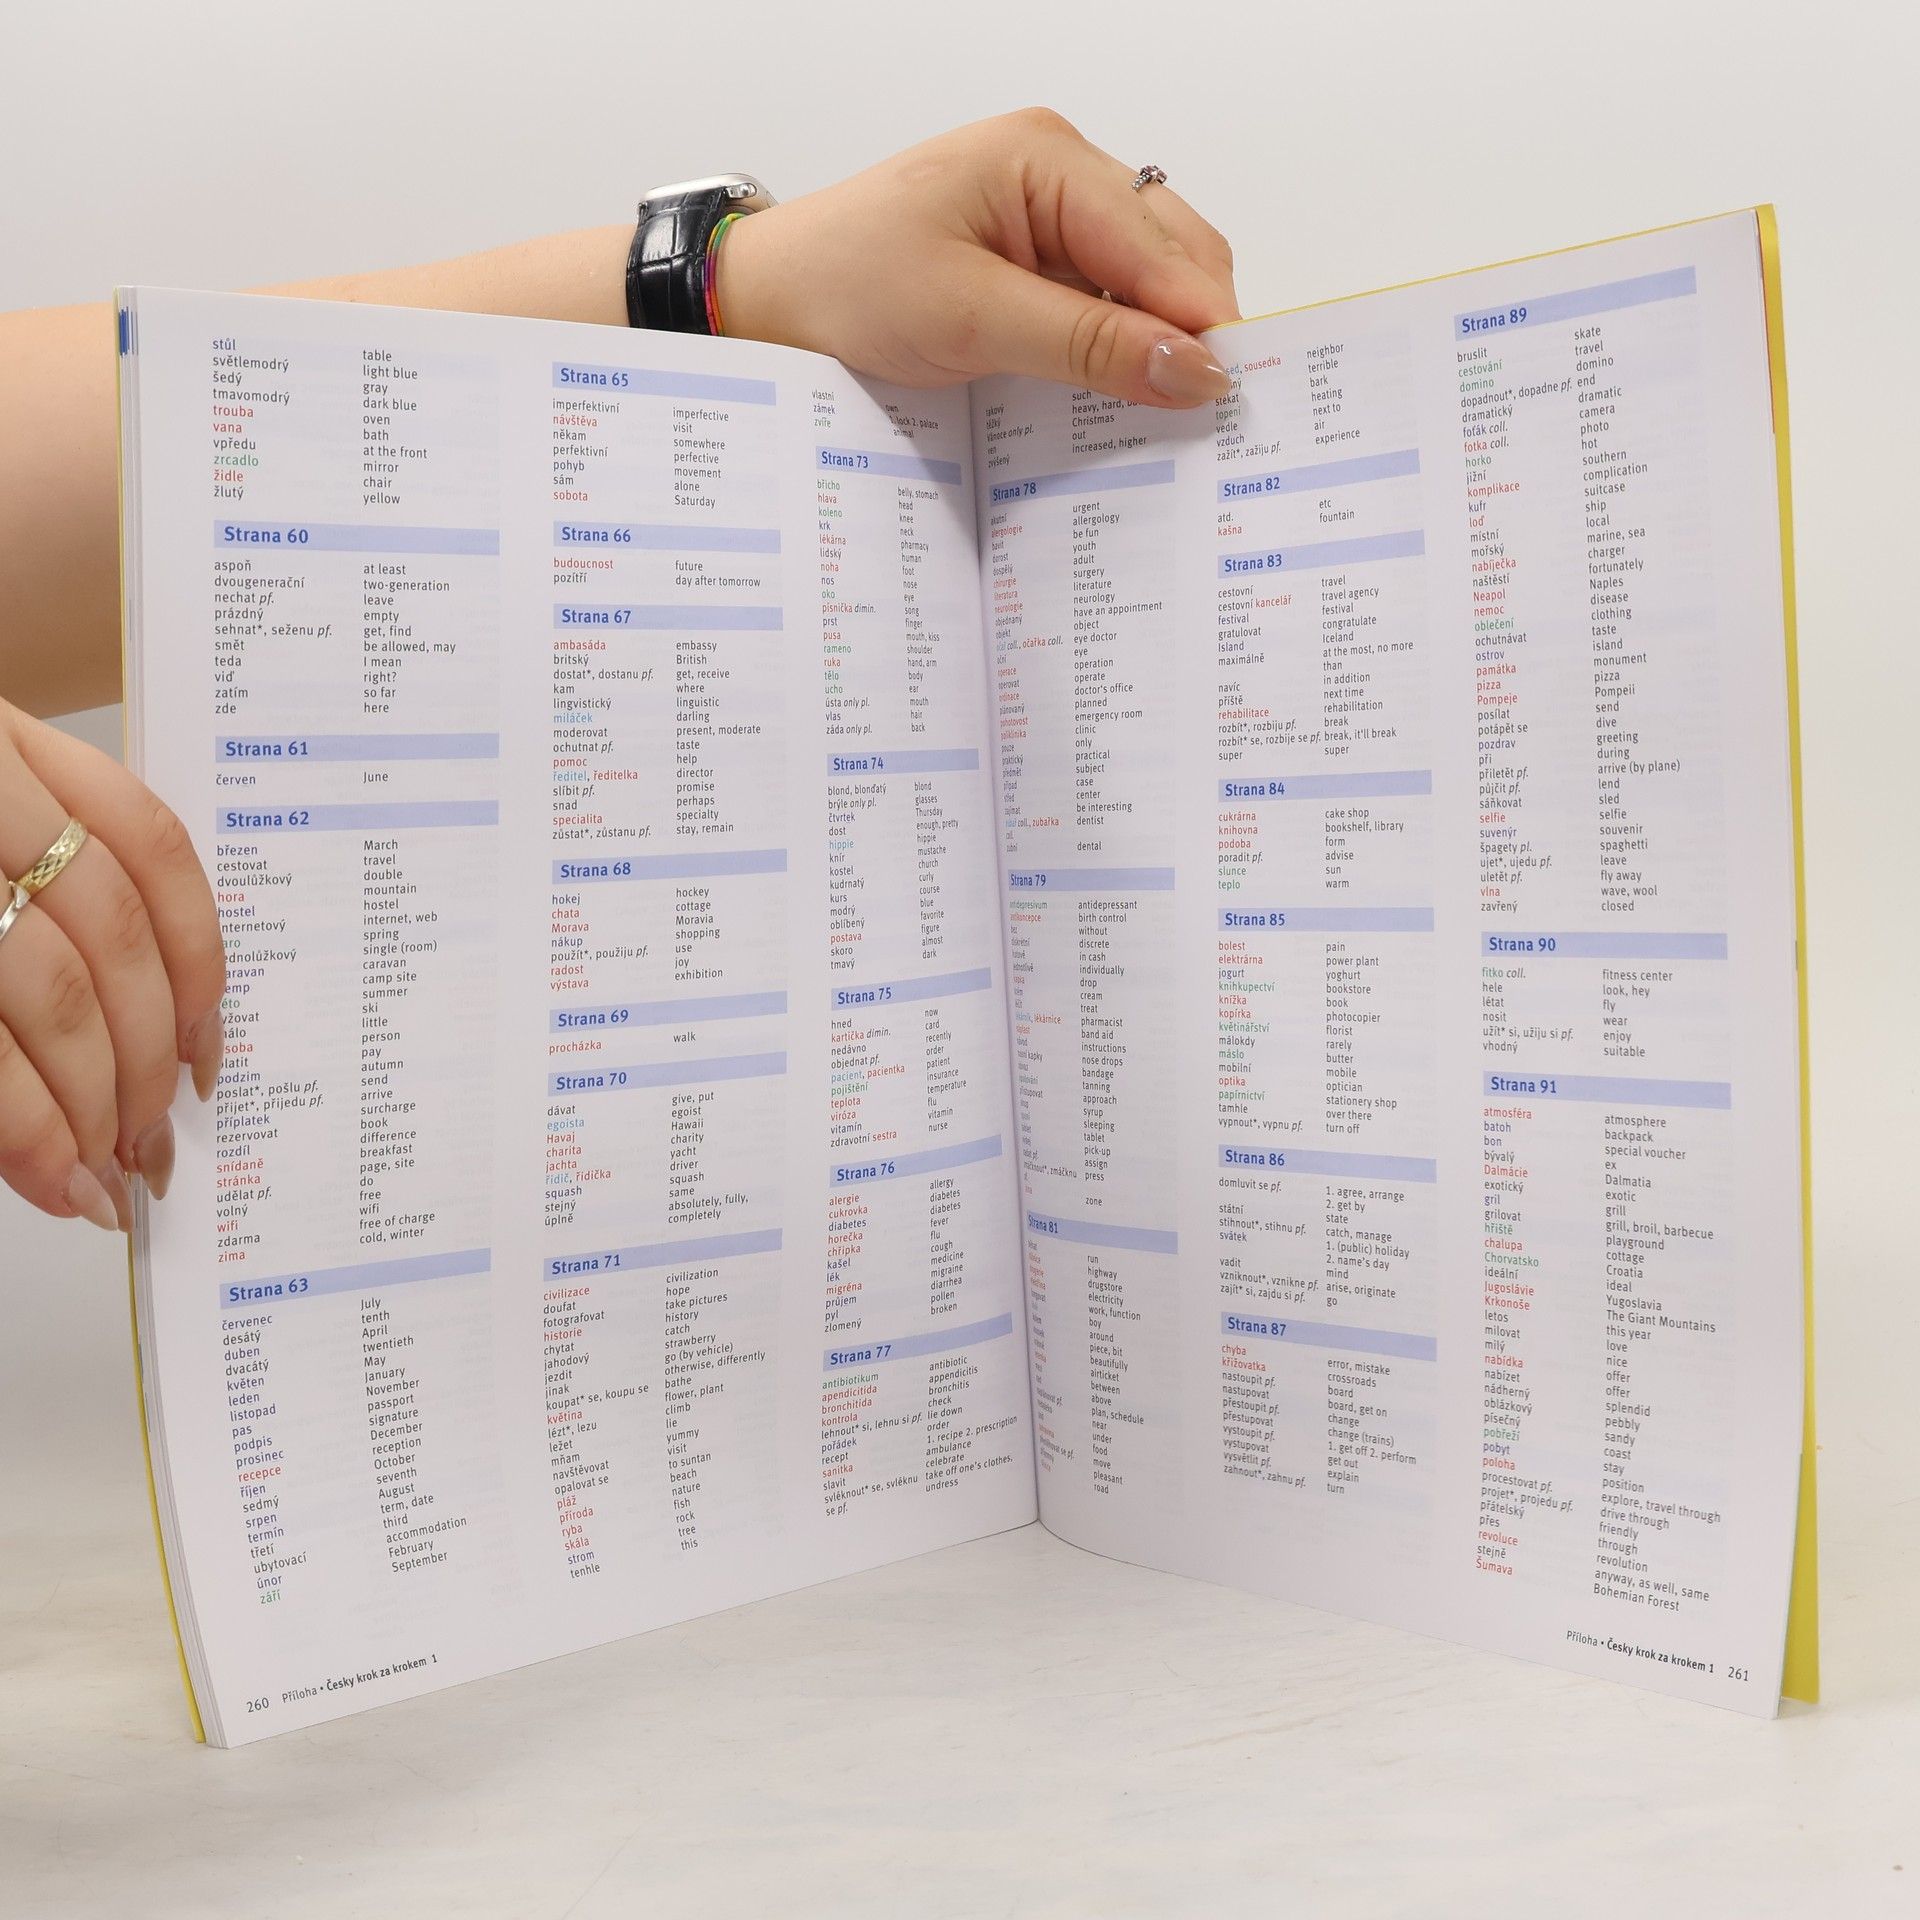 stůl table
světlemodrý light blue
šedý gray
tmavomodrý dark blue
trouba oven
vana bath
vpředu at the front
zrcadlo mirror
židle chair
žlutý yellow
Strana 60
aspoň at least
dvougenerační two-generation
nechat pf. leave
prázdný empty
sehnat*, seženu pf. get, find
smět be allowed, may
teda I mean
viď right?
zatím so far
zde here
Strana 61
červen June
Strana 62
březen March
cestovat travel
dvoulůžkový double
hora mountain
hostel hostel
internetový internet, web
aro spring
ednolůžkový single (room)
aravan caravan
emp camp site
éto summer
yžovat ski
málo little
soba person
platit pay
podzim autumn
poslat*, pošlu pf. send
přijet*, přijedu pf. arrive
příplatek surcharge
rezervovat book
rozdíl difference
snídaně breakfast
stránka page, site
udělat pf. do
volný free
wifi wifi
zdarma free of charge
zima cold, winter
Strana 63
červenec July
desátý tenth
duben April
dvacátý twentieth
květen May
leden January
listopad November
pas passport
podpis signature
prosinec December
recepce reception
říjen October
sedmý seventh
srpen August
termín term, date
třetí third
ubytovací accommodation
únor February
září September
260 Příloha • Česky krok za krokem 1
Strana 65
imperfektivní imperfective
návštěva visit
někam somewhere
perfektivní perfective
pohyb movement
sám alone
sobota Saturday
Strana 66
budoucnost future
pozítří day after tomorrow
Strana 67
ambasáda embassy
britský British
dostat*, dostanu pf. get, receive
kam where
lingvistický linguistic
miláček darling
moderovat present, moderate
ochutnat pf. taste
pomoc help
ředitel, ředitelka director
slíbit pf. promise
snad perhaps
specialita specialty
zůstat*, zůstanu pf. stay, remain
Strana 68
hokej hockey
chata cottage
Morava Moravia
nákup shopping
použít*, použiju pf. use
radost joy
výstava exhibition
Strana 69
procházka walk
Strana 70
dávat give, put
egoista egoist
Havaj Hawaii
charita charity
jachta yacht
řidič, řidička driver
squash squash
stejný same
úplně absolutely, fully,
completely
Strana 71
civilizace civilization
doufat hope
fotografovat take pictures
historie history
chytat catch
jahodový strawberry
jezdit go (by vehicle)
jinak otherwise, differently
koupat* se, koupu se bathe
květina flower, plant
lézt*, lezu climb
ležet lie
mňam yummy
navštěvovat visit
opalovat se to suntan
pláž beach
příroda nature
ryba fish
skála rock
strom tree
tenhle this
vlastní own
zámek 1. lock 2. palace
zvíře animal
Strana 73
břicho belly, stomach
hlava head
koleno knee
krk neck
lékárna pharmacy
lidský human
noha foot
nos nose
oko eye
písnička dimin. song
prst finger
pusa mouth, kiss
rameno shoulder
ruka hand, arm
tělo body
ucho ear
ústa only pl. mouth
vlas hair
záda only pl. back
Strana 74
blond, blonďatý blond
brýle only pl. glasses
čtvrtek Thursday
dost enough, pretty
hippie hippie
knír mustache
kostel church
kudrnatý curly
kurs course
modrý blue
oblíbený favorite
postava figure
skoro almost
tmavý dark
Strana 75
hned now
kartička dimin. card
nedávno recently
objednat pf. order
pacient, pacientka patient
pojištění insurance
teplota temperature
viróza flu
vitamín vitamin
zdravotní sestra nurse
Strana 76
alergie allergy
cukrovka diabetes
diabetes diabetes
horečka fever
chřipka flu
kašel cough
lék medicine
migréna migraine
průjem diarrhea
pyl pollen
zlomený broken
Strana 77
antibiotikum antibiotic
apendicitida appendicitis
bronchitida bronchitis
kontrola check
lehnout* si, lehnu si pf. lie down
pořádek order
recept 1. recipe 2. prescription
sanitka ambulance
slavit celebrate
svléknout* se, svléknu take off one's clothes,
se pf. undress
takový such
těžký heavy, hard,
Vánoce only pl. Christmas
ven out
zvýšený increased, higher
Strana 78
akutní urgent
alergologie allergology
bavit be fun
dorost youth
dospělý adult
chirurgie surgery
literatura literature
neurologie neurology
objednaný have an appointment
objekt object
oční coll., očařka coll. eye doctor
oční eye
operace operation
operovat operate
ordinace doctor's office
plánovaný planned
pohotovost emergency room
poliklinika clinic
pouze only
praktický practical
předmět subject
případ case
střed center
zajímat be interesting
coll., zubařka dentist
coll.
zubní dental
Strana 79
antidepresivum antidepressant
antikoncepce birth control
bez without
diskrétní discrete
hotově in cash
jednotlivě individually
kapka drop
krém cream
léčit treat
lékárník, lékárnice pharmacist
náplast band aid
návod instructions
nosní kapky nose drops
bandage
tanning
přistupovat approach
sirup syrup
sleeping
tablet
pick-up
assign
zmáčknout*, zmáčknu press
zone
Strana 81
run
highway
drugstore
electricity
work, function
boy
around
piece, bit
beautifully
airticket
between
above
plan, schedule
near
under
food
move
pleasant
road
sed, sousedka neighbor
terrible
štěkat bark
topení heating
vedle next to
vzduch air
zažít*, zažiju pf. experience
Strana 82
atd. etc
kašna fountain
Strana 83
cestovní travel
cestovní kancelář travel agency
festival festival
gratulovat congratulate
Island Iceland
maximálně at the most, no more
than
navíc in addition
příště next time
rehabilitace rehabilitation
rozbít*, rozbiju pf. break
rozbít* se, rozbije se pf. break, it'll break
super super
Strana 84
cukrárna cake shop
knihovna bookshelf, library
podoba form
poradit pf. advise
slunce sun
teplo warm
Strana 85
bolest pain
elektrárna power plant
jogurt yoghurt
knihkupectví bookstore
knížka book
kopírka photocopier
květinářství florist
málokdy rarely
máslo butter
mobilní mobile
optika optician
papírnictví stationery shop
tamhle over there
vypnout*, vypnu pf. turn off
Strana 86
domluvit se pf. 1. agree, arrange
2. get by
státní state
stihnout*, stihnu pf. catch, manage
svátek 1. (public) holiday
2. name's day
vadit mind
vzniknout*, vznikne pf. arise, originate
zajít* si, zajdu si pf. go
Strana 87
chyba error, mistake
křižovatka crossroads
nastoupit pf. board
nastupovat board, get on
přestoupit pf. change
přestupovat change (trains)
vystoupit pf. 1. get off 2. perform
vystupovat get out
vysvětlit pf. explain
zahnout*, zahnu pf. turn
Strana 89
bruslit skate
cestování travel
domino domino
dopadnout*, dopadne pf. end
dramatický dramatic
foťák coll. camera
fotka coll. photo
horko hot
jižní southern
komplikace complication
kufr suitcase
loď ship
místní local
mořský marine, sea
nabíječka charger
naštěstí fortunately
Neapol Naples
nemoc disease
oblečení clothing
ochutnávat taste
ostrov island
památka monument
pizza pizza
Pompeje Pompeii
posílat send
potápět se dive
pozdrav greeting
při during
přiletět pf. arrive (by plane)
půjčit pf. lend
sáňkovat sled
selfie selfie
suvenýr souvenir
špagety pl. spaghetti
ujet*, ujedu pf. leave
uletět pf. fly away
vlna wave, wool
zavřený closed
Strana 90
fitko coll. fitness center
hele look, hey
létat fly
nosit wear
užít* si, užiju si pf. enjoy
vhodný suitable
Strana 91
atmosféra atmosphere
batoh backpack
bon special voucher
bývalý ex
Dalmácie Dalmatia
exotický exotic
gril grill
grilovat grill, broil, barbecue
hřiště playground
chalupa cottage
Chorvatsko Croatia
ideální ideal
Jugoslávie Yugoslavia
Krkonoše The Giant Mountains
letos this year
milovat love
milý nice
nabídka offer
nabízet offer
nádherný splendid
oblázkový pebbly
písečný sandy
pobřeží coast
pobyt stay
poloha position
procestovat pf. explore, travel through
projet*, projedu pf. drive through
přátelský friendly
přes through
revoluce revolution
stejně anyway, as well, same
Šumava Bohemian Forest
Příloha • Česky krok za krokem 1 261